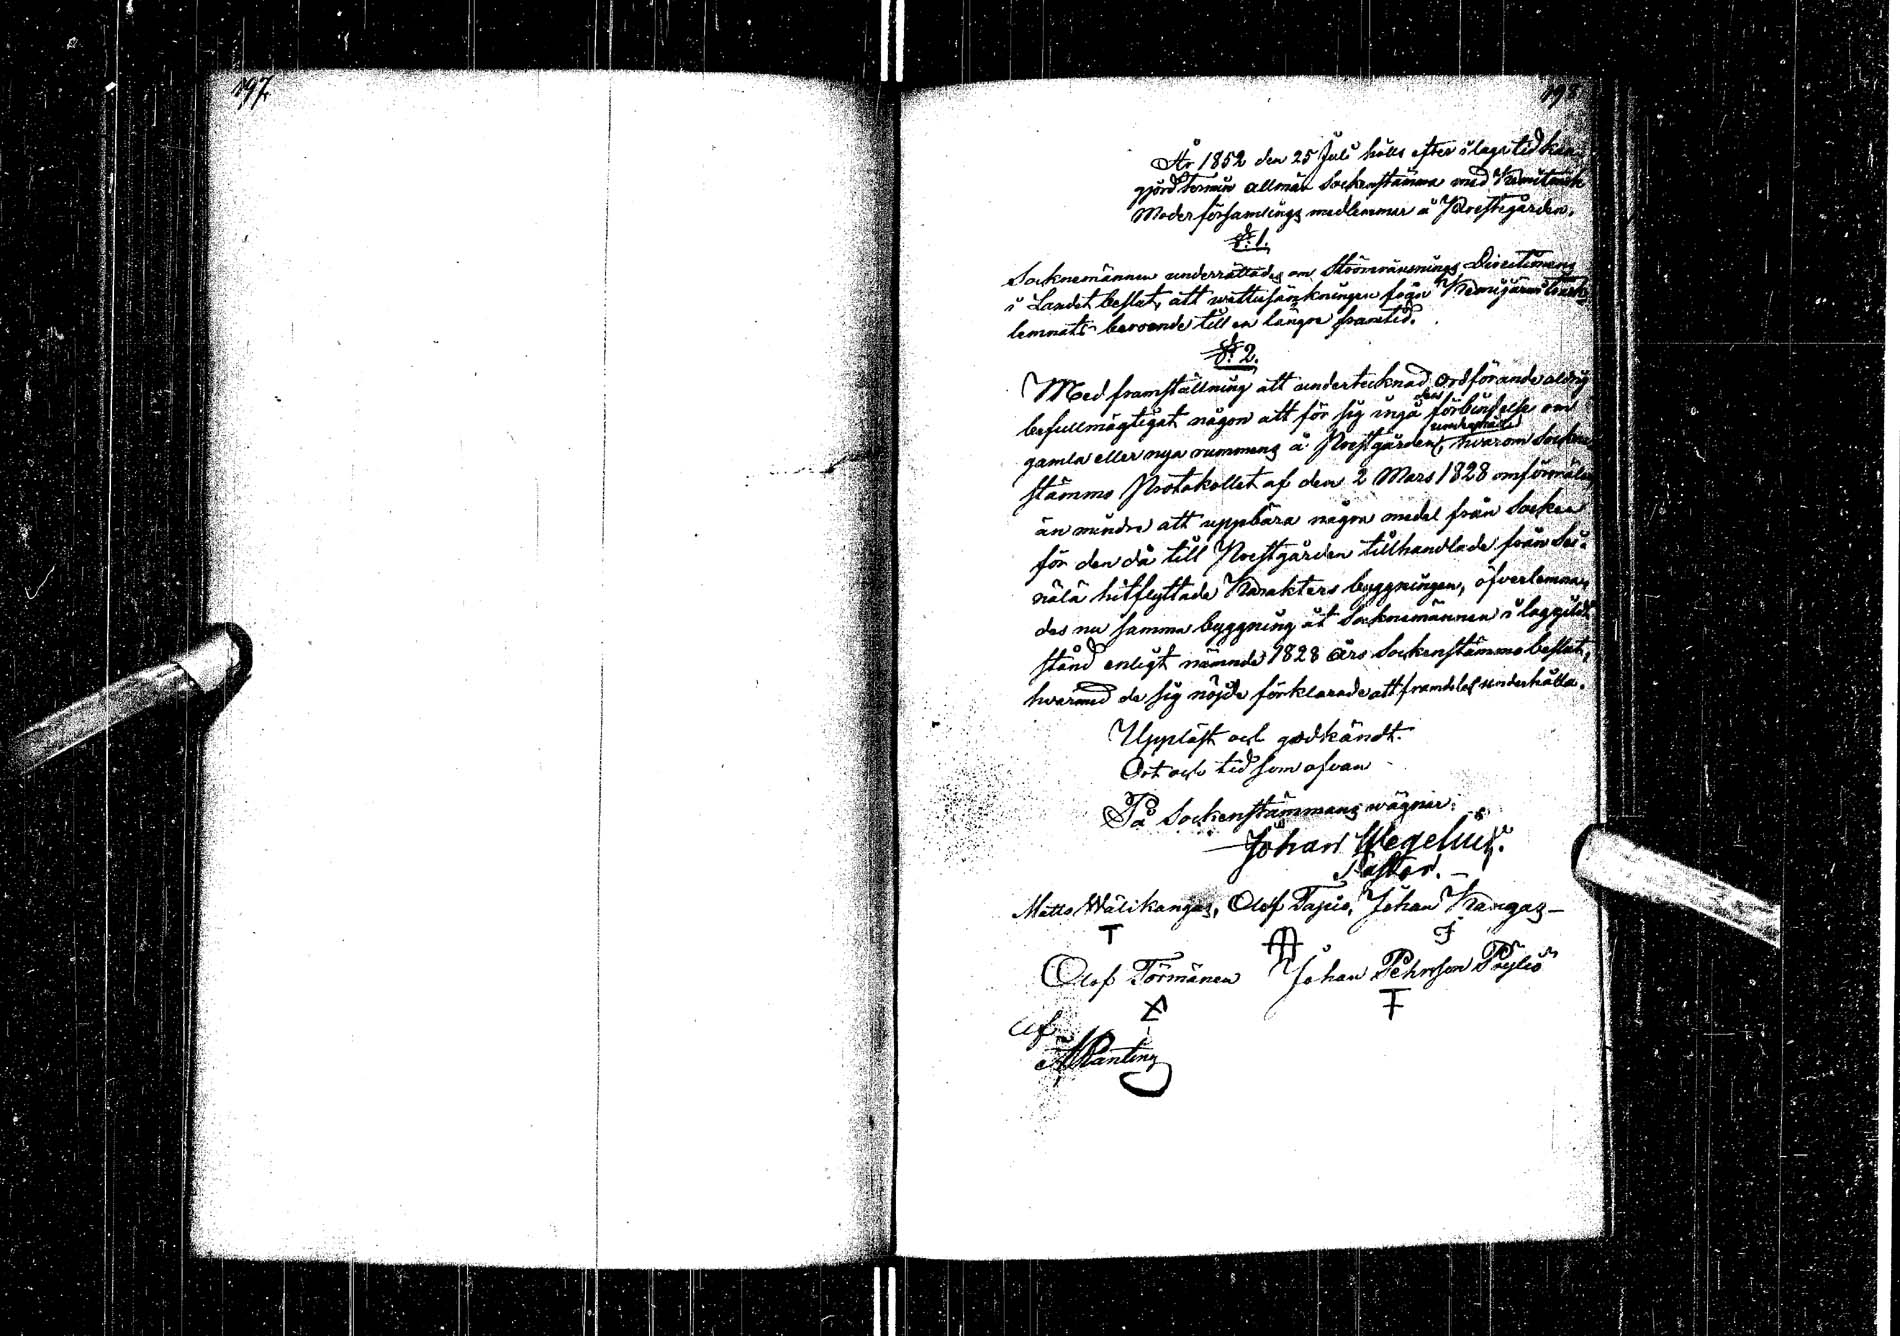 197.
198
År 1852 den 25 Juli hölls efter i laga tid kun-
gjord termin allmän Sockenstämma med Kemiträsk
Moderförsamlings medlemmar å Prestgården.
§. 1.
Socknemännen underrättades om Strömränsnings Directionens
i Landet beslut, att wattusänkningen från Kemijärwi träsk
lemnats beroende till en längre framtid.
§. 2.
Med framställning att undertecknad ordförande aldrig
befullmägtigat någon att för sig ingå den förbindelse om
gamla eller nya rummens å Prestgården underhåll, hvarom Sockne
stämmo Protokollet af den 2 Mars 1828 omförmäler
än mindre att uppbära några medel från Socken
för den då till Prestgården tillhandlade från
hitflyttade Karakters byggningen, öfverlemna-
des nu samma byggning åt Socknemännen i laggildt
stånd enligt nämnde 1828 års Sockenstämmo beslut,
hvarmed de sig nöjde förklarade att framdeles underhålla.
Uppläst och godkändt.
Ort och tid som ofvan
På Sockenstämmans wägnar:
Johan Wegelius.
Pastor.
Matts Wälikangas, Olof Tapio, Johan Kangas
Olof Törmänen Johan Pehrsson Pöyliö
Uf
Planting